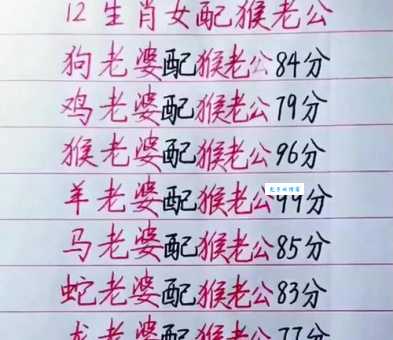 12生肖女配猴老公
狗老婆配猴老公84分
鸡老婆配猴老公79分
猴老婆配猴老公96分
羊老婆配猴老公99分
马老婆配猴老公85分
蛇老婆配猴老公83分
龙老婆配猴老公77分